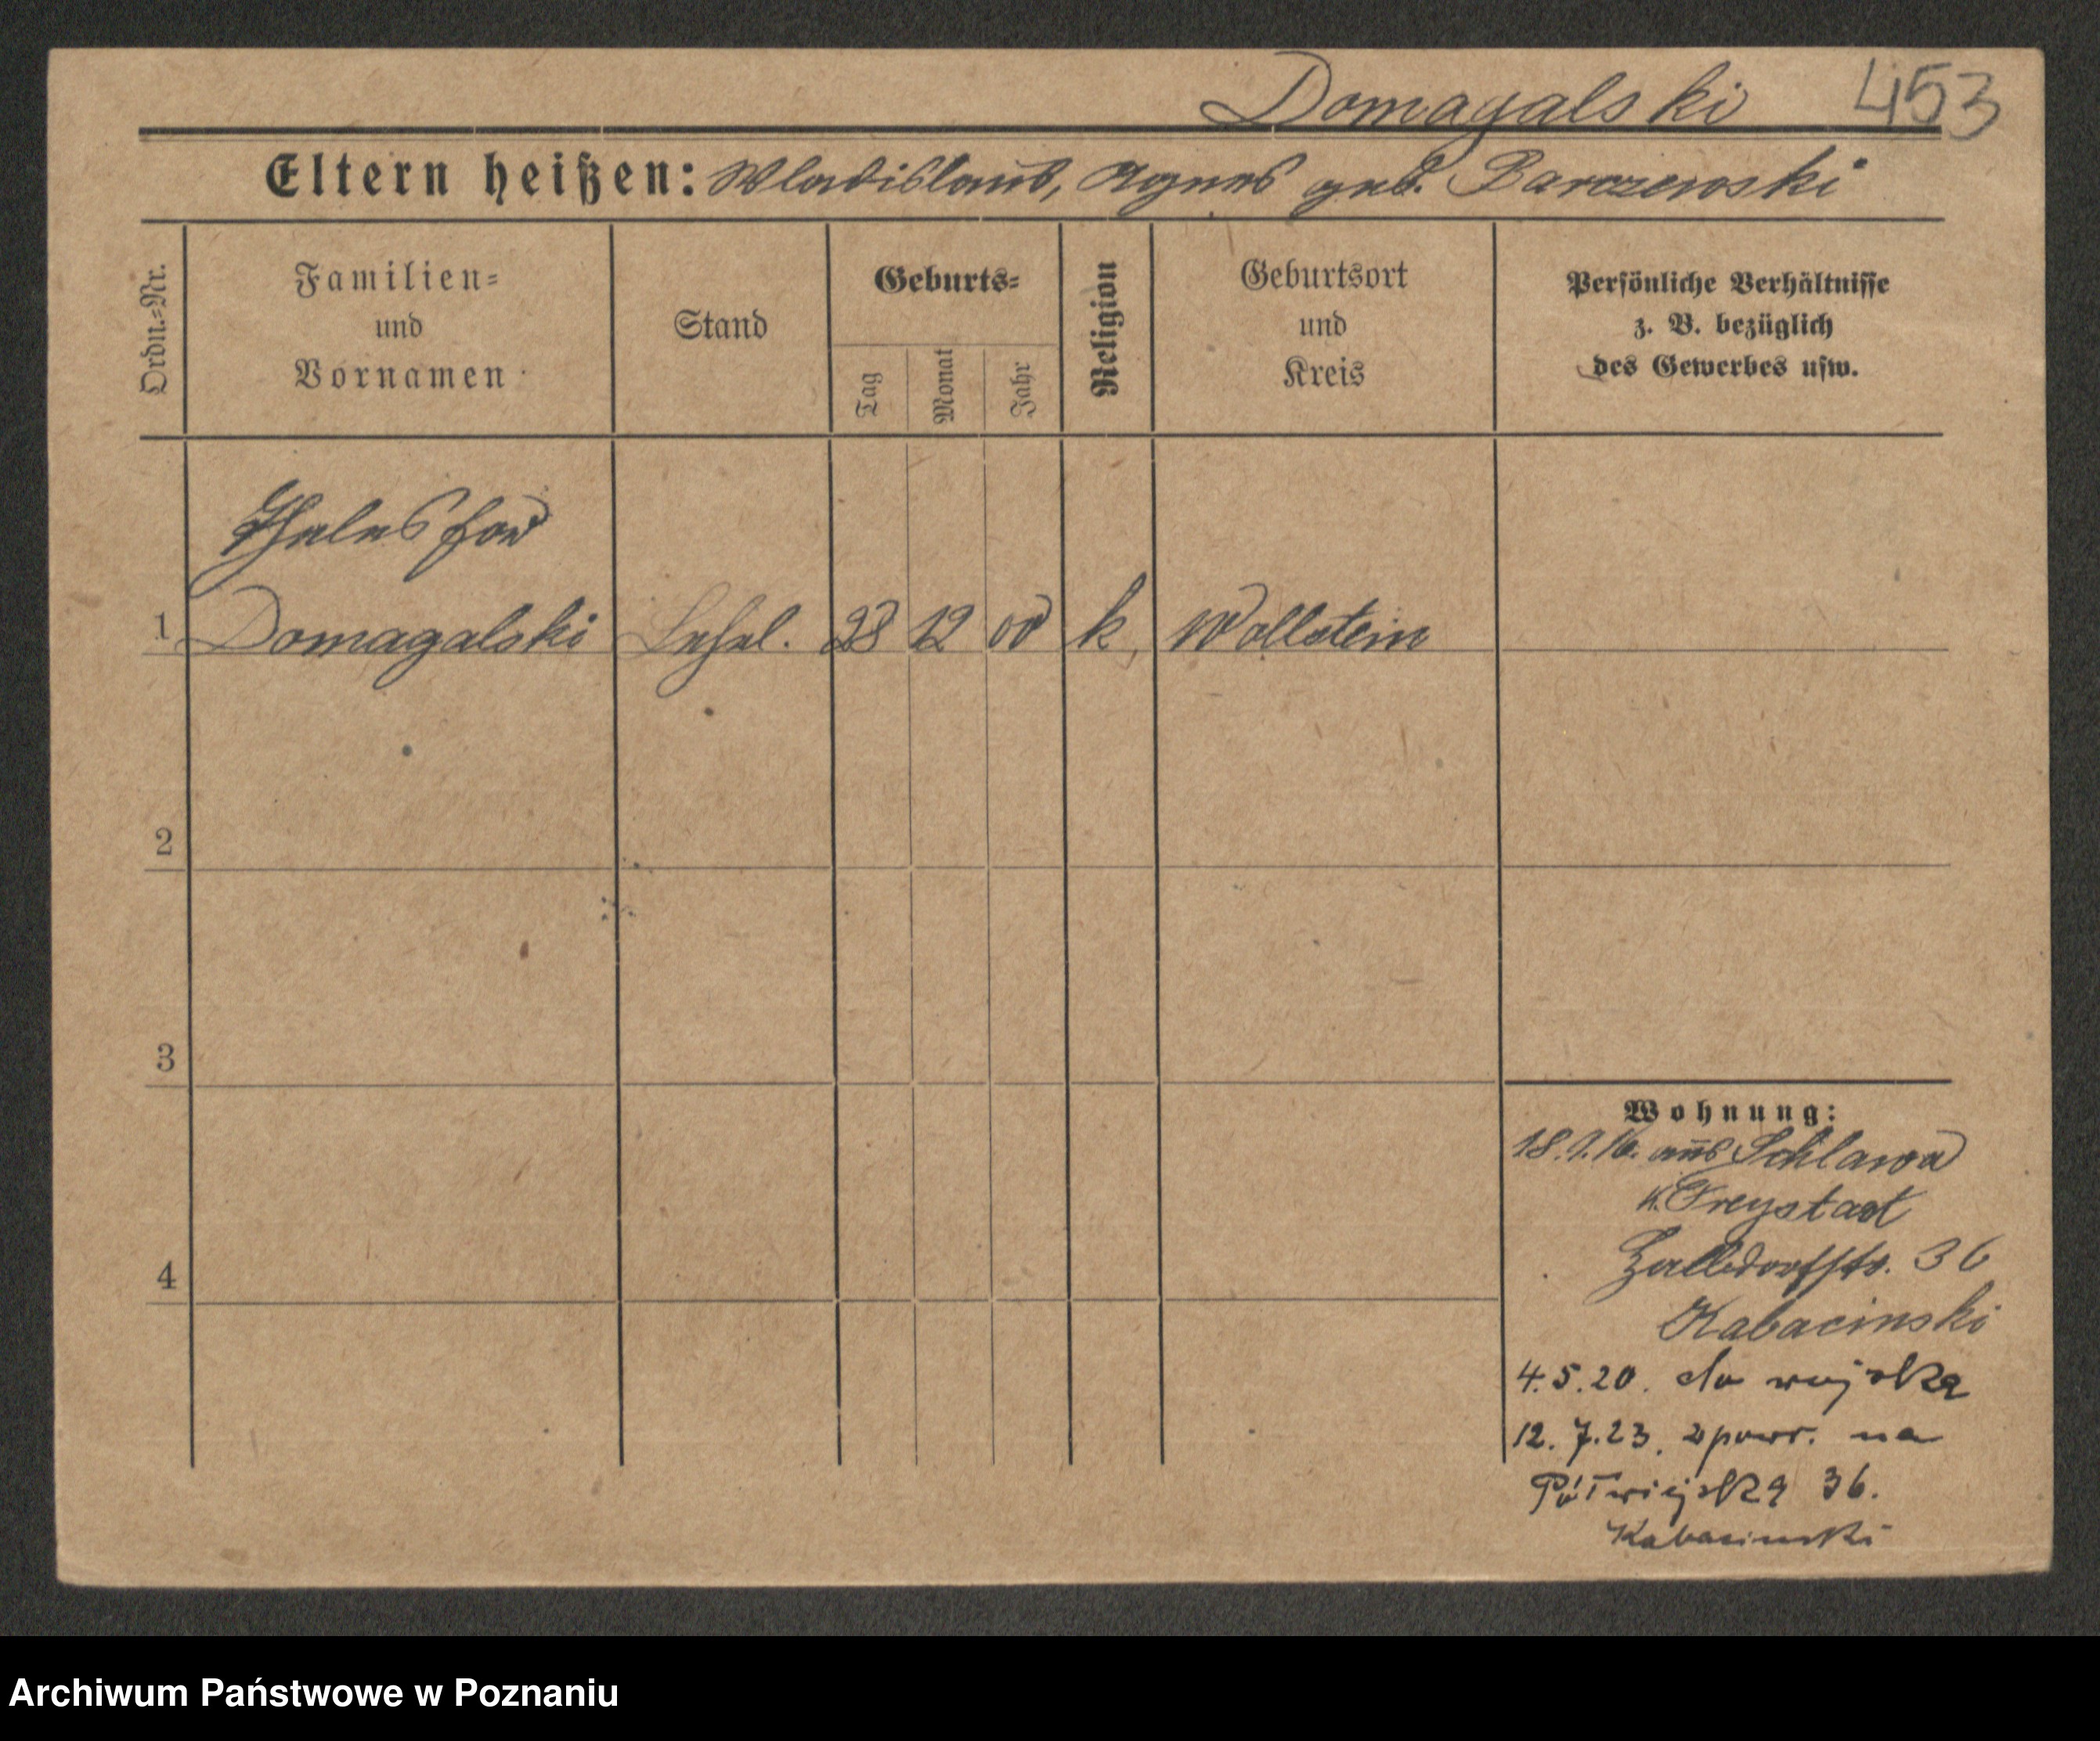 Domagalski 453
Eltern heißen: Wladislaus, Agnes geb. Barczewski
Ordn.=Nr.
Familien=
und
Vornamen
Stand
Geburts=
Tag
Monat
Jahr
Religion
Geburtsort
und
Kreis
Persönliche Verhältnisse
z. B. bezüglich
des Gewerbes usw.
1 Domagalski 28 12 00 k. Wollstein
2
3
4
Wohnung:
aus Schlawa
K. Freystadt
36
Kabacinski
4.5.20. do wojska
12.7.23. zpowr. na
Półwiejską 36.
Kabacinski
Archiwum Państwowe w Poznaniu